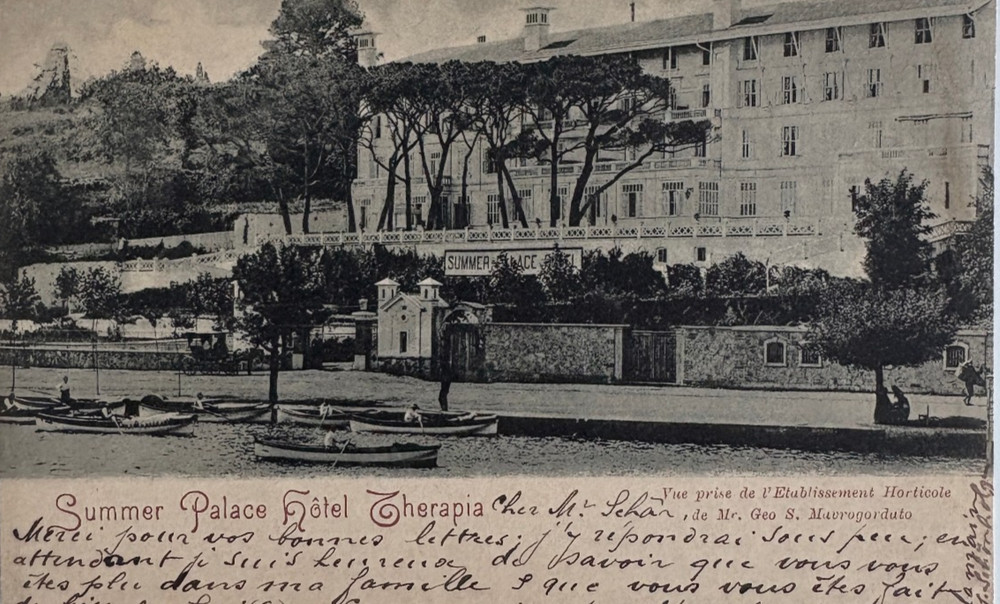 SUMMER PALACE HOTEL
Summer Palace Hôtel Therapia
Vue prise de l'Etablissement Horticole
de Mr. Geo S. Mavrogordato
Cher Mr.
Merci pour vos bonnes lettres; j'y répondrai sous peu; en
attendant je suis heureux de savoir que vous vous
êtes plu dans ma famille & que vous vous êtes fait